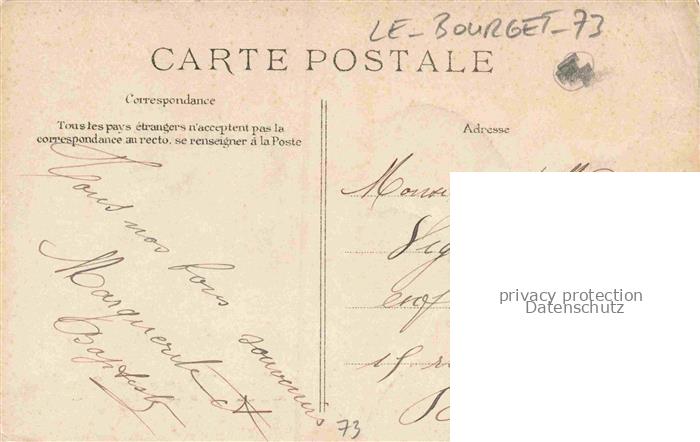 LE-BOURGET-73
CARTE POSTALE
Correspondance
Tous les pays étrangers n'acceptent pas la
correspondance au recto, se renseigner à la Poste
Adresse
nos bons souvenirs
Marguerite et
Baptiste
privacy protection
Datenschutz
73